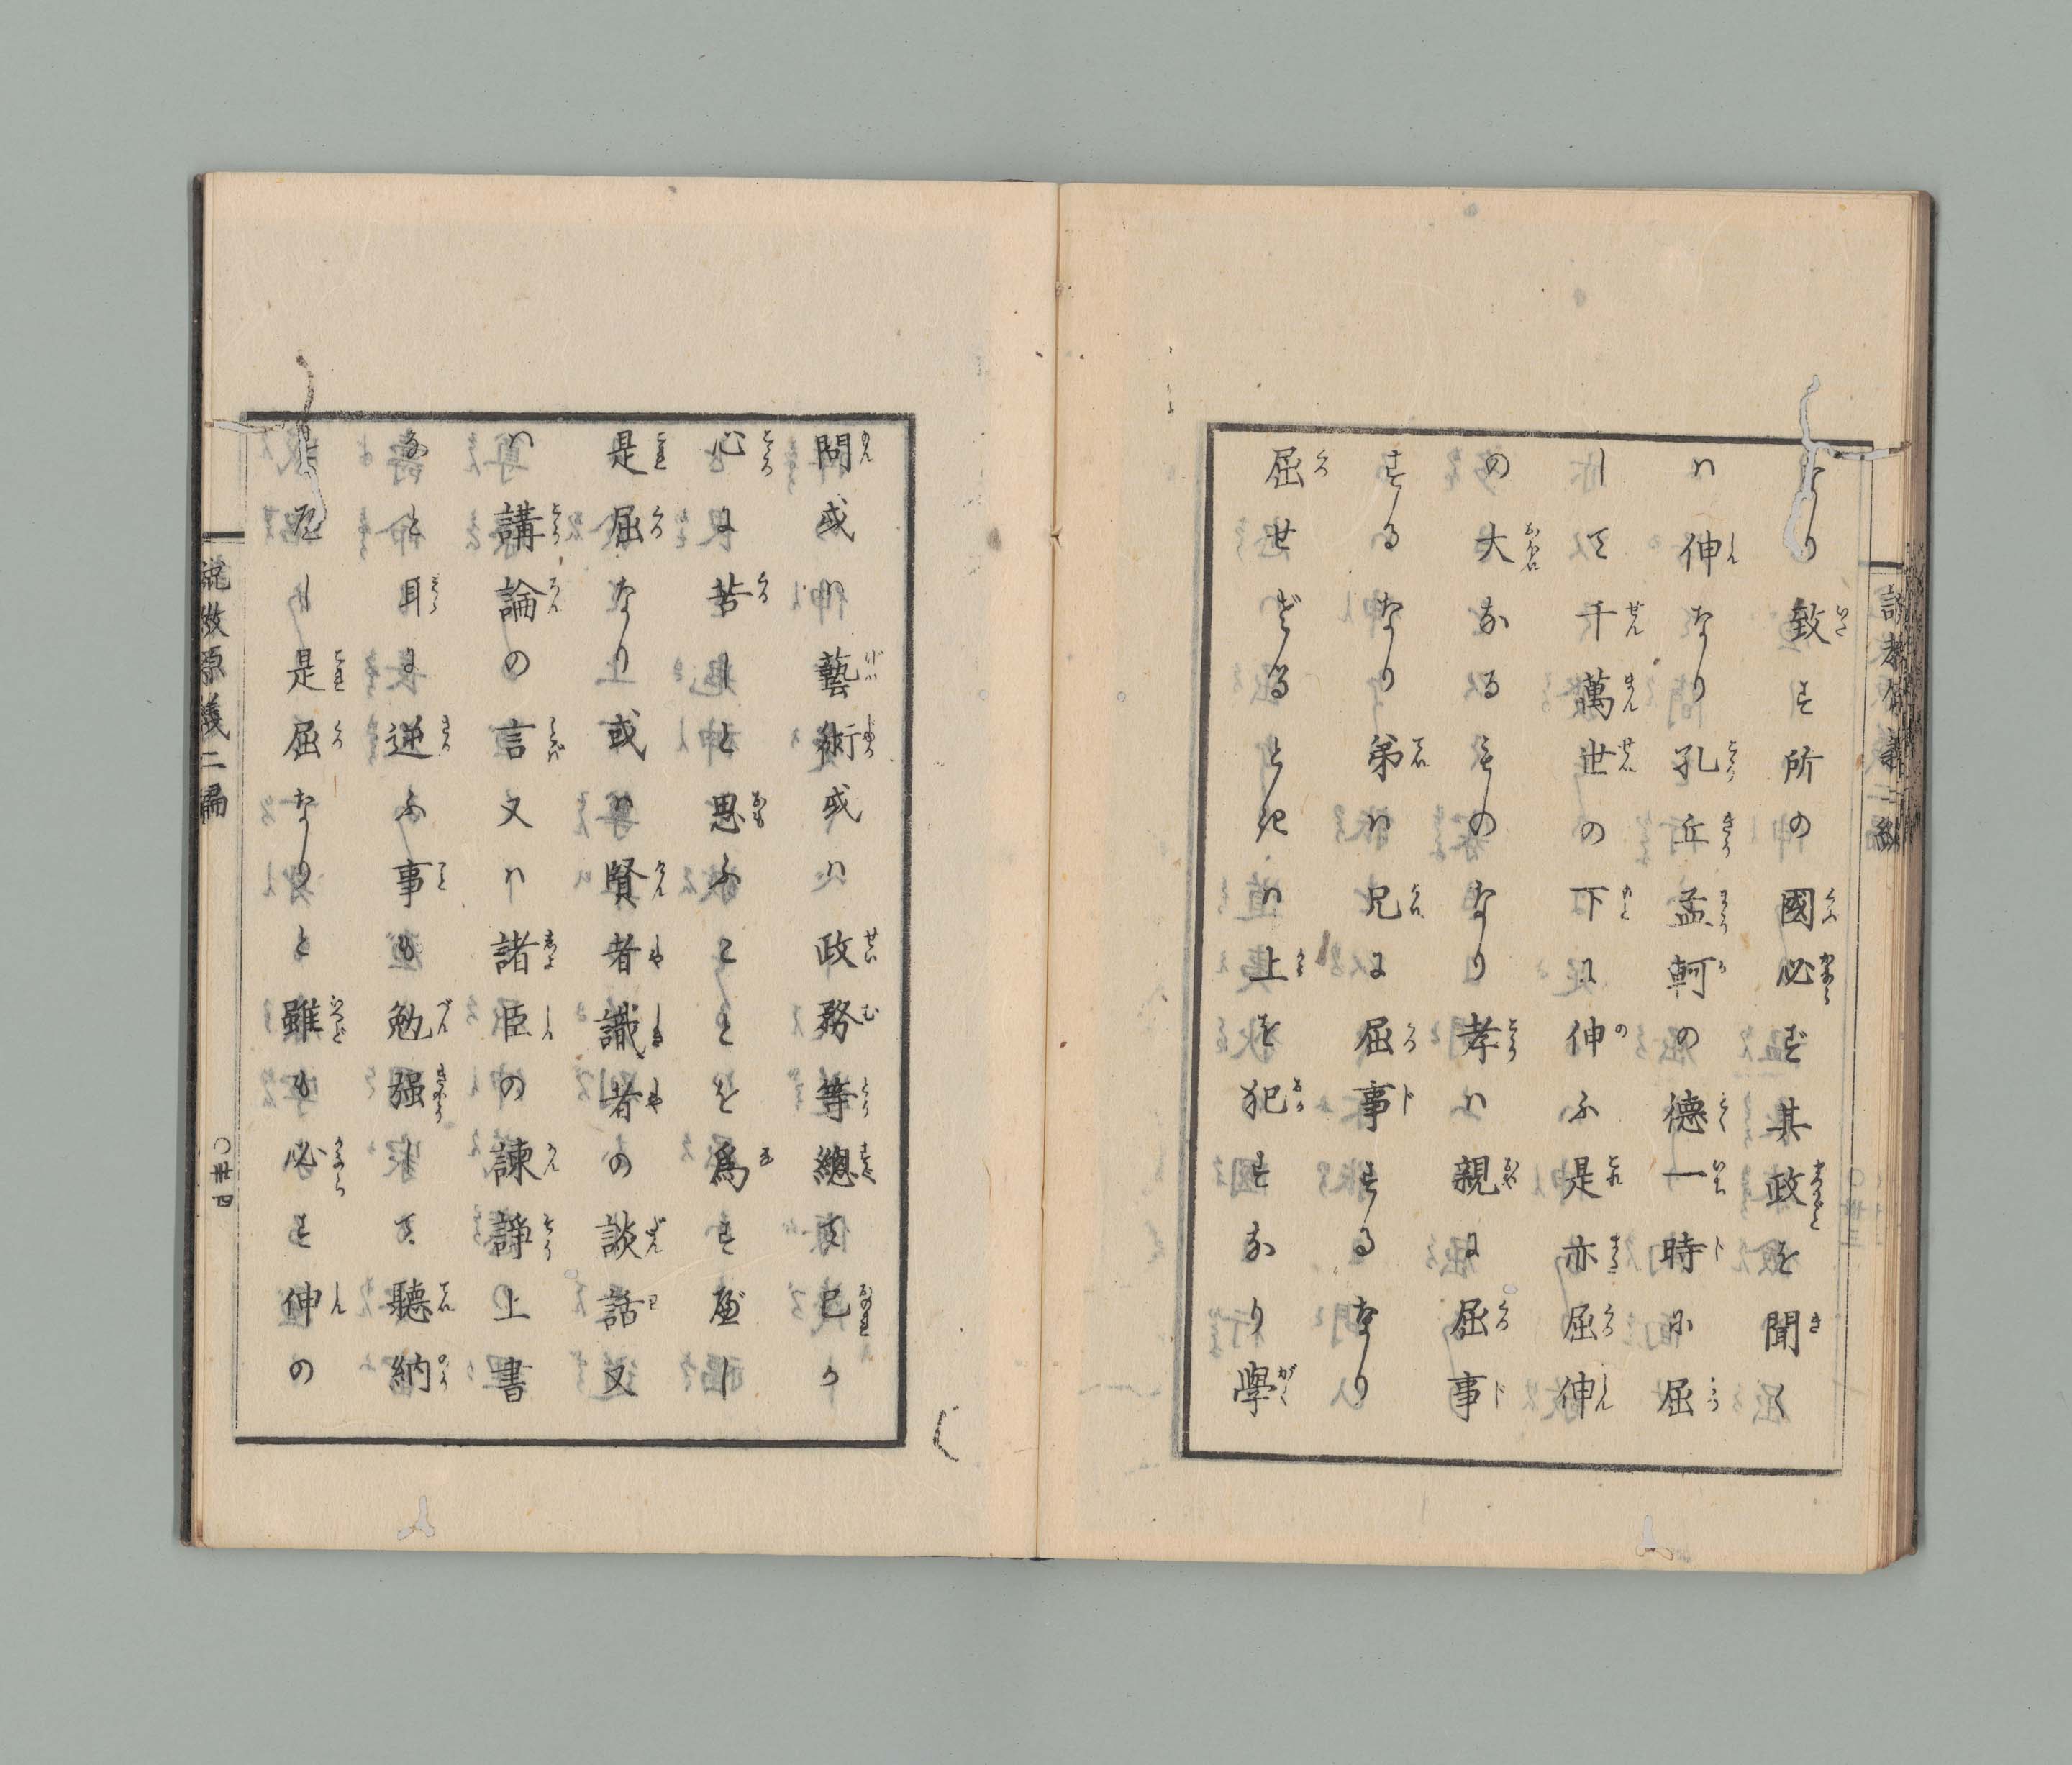 なり致す所の國必ず其政を聞く
ハ伸なり孔丘孟軻の德一時に屈
して千萬世の下に伸ふ是亦屈伸
の大なるものなり孝ハ親に屈事
するなり弟ハ兄に屈事するなり
屈せざるときハ上を犯すなり學
問或ハ藝術或ハ政務等總て己か
心に苦しと思ふことを爲すべし
是屈なり或ハ賢者識者の談話又
ハ講論の言又ハ諸臣の諫諍上書
など耳に逆ふ事も勉强して聽納
べし是屈なりと雖も必す伸の
說敎原義二編
〇卅四